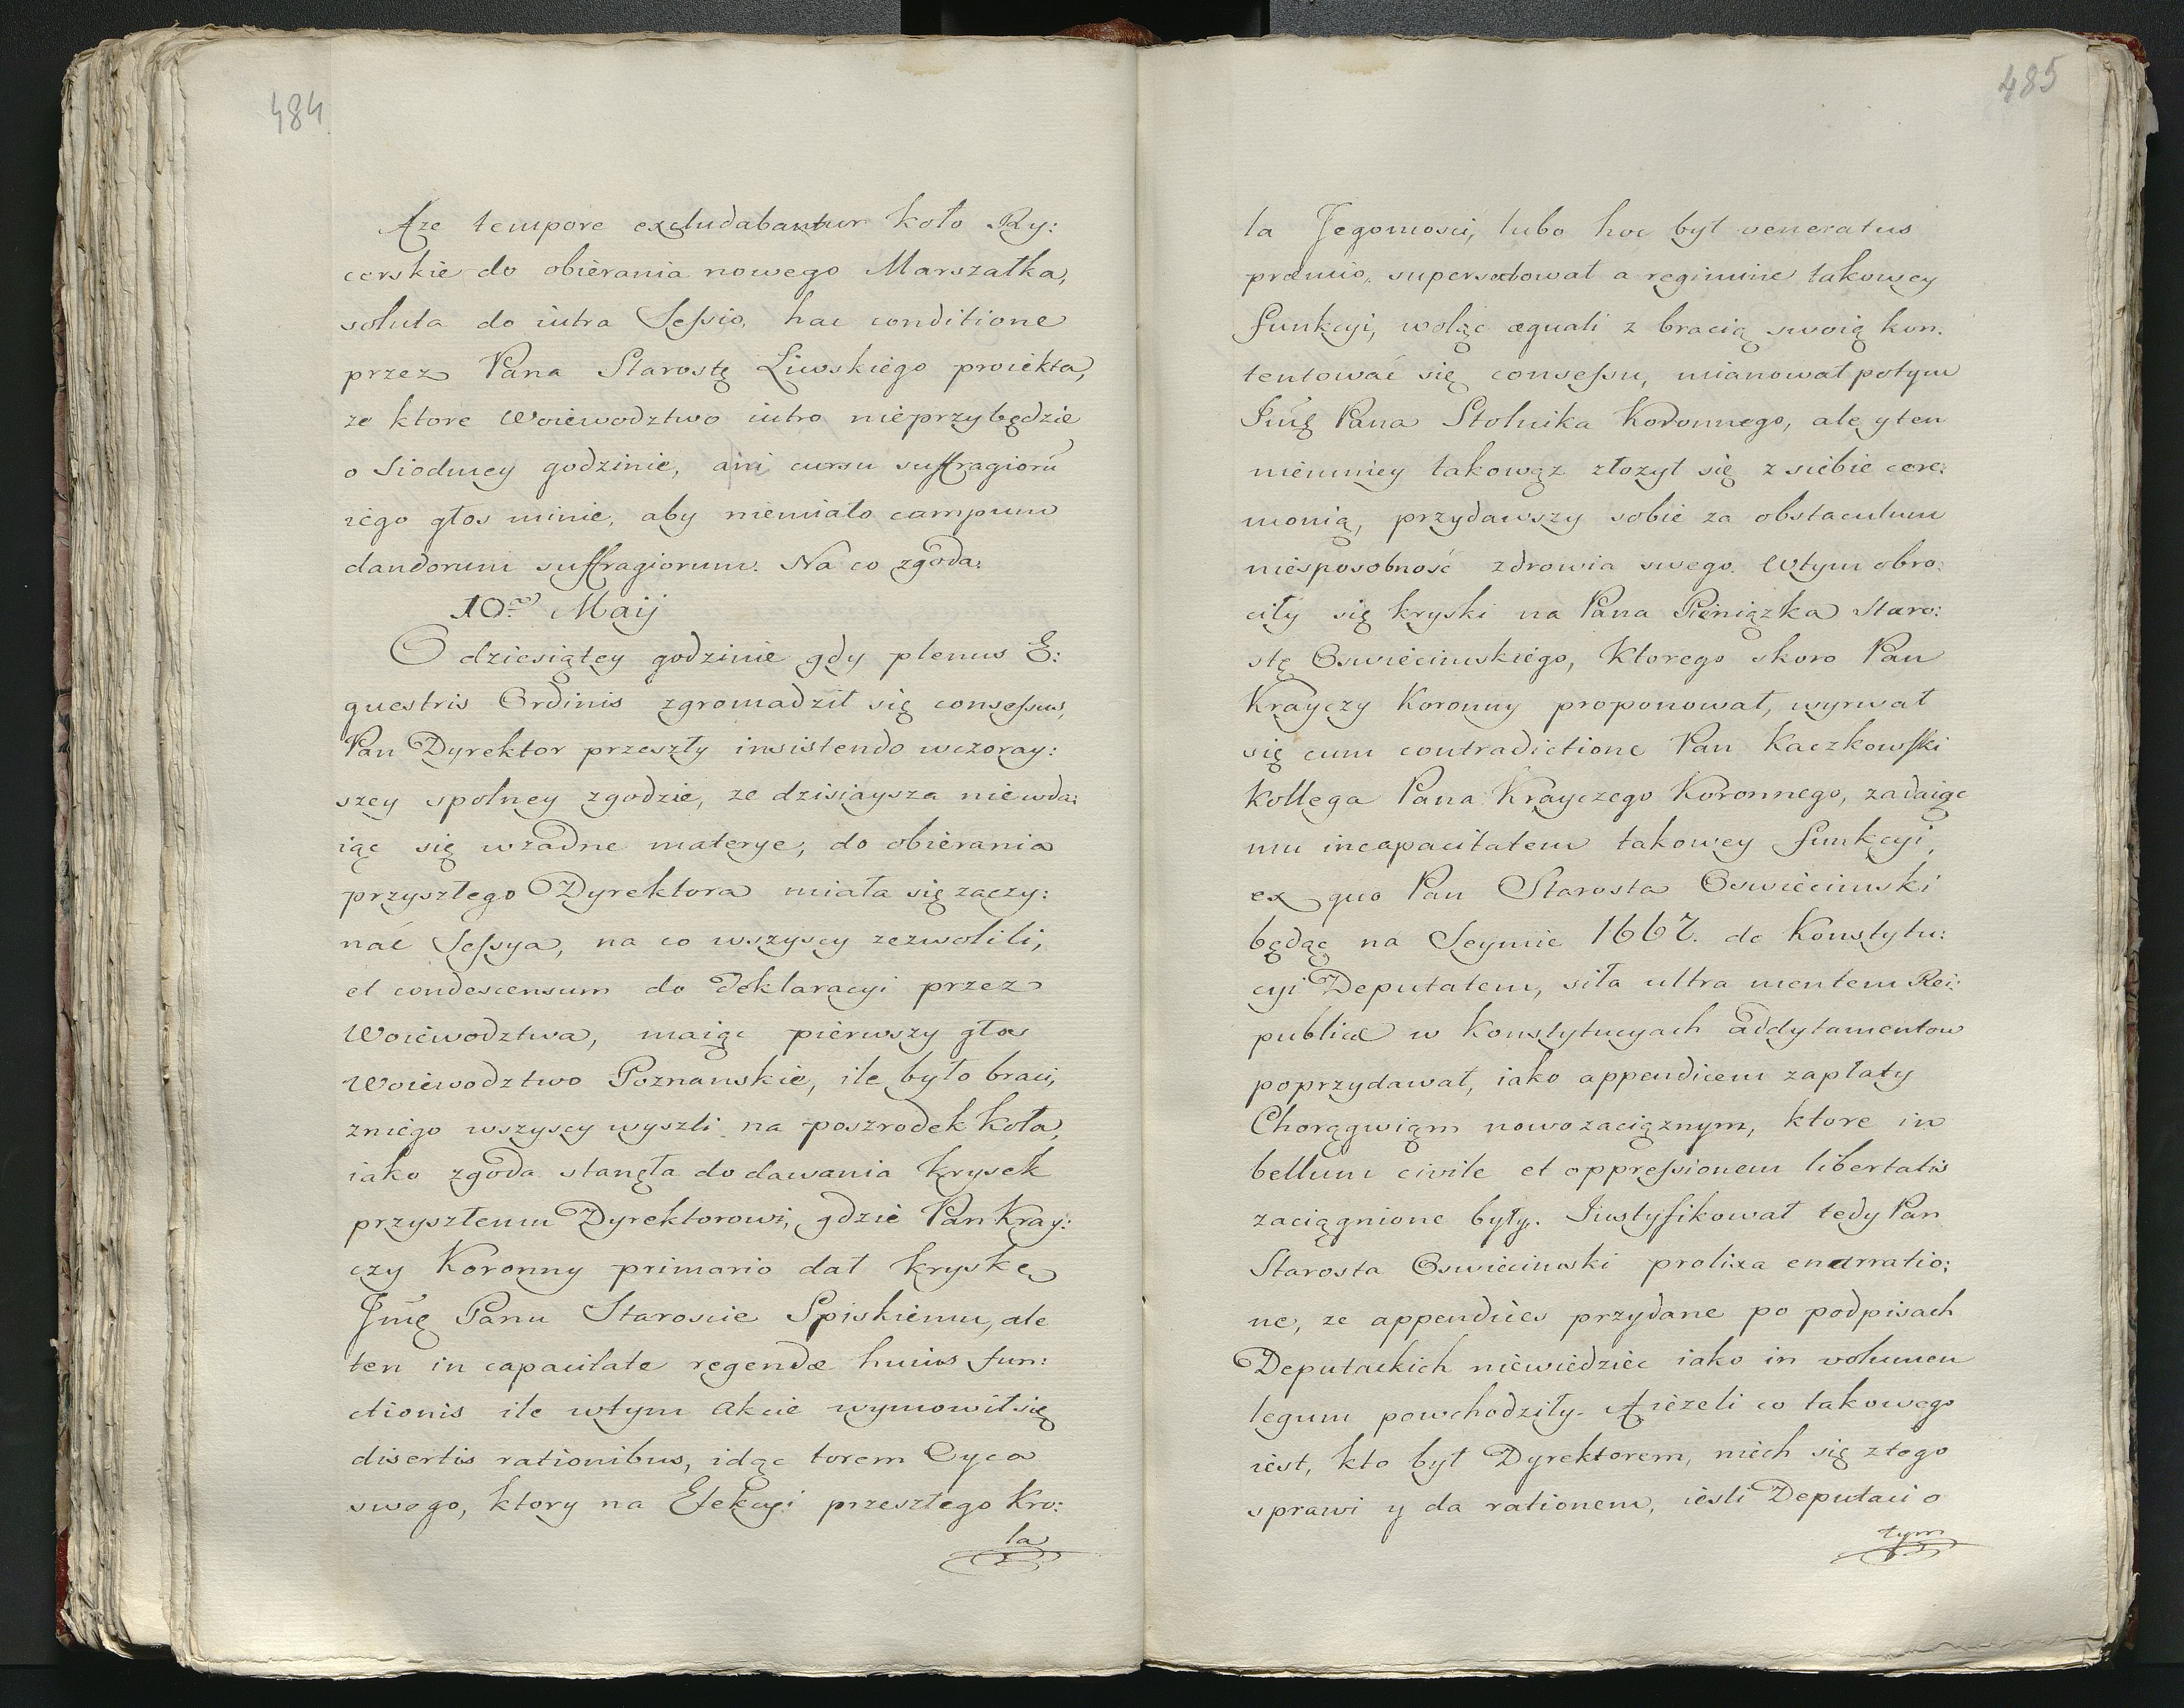 484
Aze tempore excludabantur koło Ry:
cerskie do obierania nowego Marszałka,
soluta do iutra Sessio, hac conditione
przez Pana Starostę Liwskiego proiekta,
ze ktore Woiewodztwo iutro nieprzybędzie
o Siodmey godzinie, ani cursu suffragiorū
iego głos minie, aby niemiało campum
dandorum suffragiorum. Na co zgoda.
10ma Maij
O dziesiątey godzinie gdy plenus E:
questris Ordinis zgromadził się consessus,
Pan Dyrektor przeszły insistendo wczoray:
szey spolney zgodzie, ze dzisiaysza niewda:
iąc się wzadne materye, do obierania
przyszłego Dyrektora miała się zaczy:
nać Sessya, na co wszyscy zezwolili,
et condescensum do deklaracyi przez
Woiewodztwa, maiąc pierwszy głos
Woiewodztwo Poznanskie, ile było braci,
zniego wszyscy wyszli na poszrodek koła,
iako zgoda stanęła do dawania krysek
przyszłemu Dyrektorowi, gdzie Pan Kray:
czy Koronny primario dał kryskę
Jmę Panu Staroscie Spiskiemu, ale
ten in capacitate regendæ huius fun:
ctionis ile wtym akcie wymowił się
disertis rationibus, idąc torem Oyca
swego, ktory na Elekcyi przeszłego Kro:
la
485
la Jegomosci, lubo hoc był veneratus
præmio, supersedował a regimine takowey
funkcyi, woląc æquali z bracią swoią kon:
tentować się consessu, mianował potym
Jmę Pana Stolnika Koronnego, ale y ten
niemniey takowąz złozył się z siebie cere:
monią, przydawszy sobie za obstaculum
niesposobność zdrowia swego. Wtym obro:
ciły się kryski na Pana Pieniązka Staro:
stę Oswiecimskiego, Ktorego skoro Pan
Krayczy Koronny proponował, wyrwał
się cum contradictione Pan Kaczkowski
Kollega Pana Krayczego Koronnego, zadaiąc
mu incapacitatem takowey funkcyi,
ex quo Pan Starosta Oswiecimski
będąc na Seymie 1667. do Konstytu:
cyi Deputatem, siła ultra mentem Rei:
publicæ w Konstytucyach addytamentow
poprzydawał, iako appendicem zapłaty
Chorągwiąm nowozaciąznym, ktore in
bellum civile et oppressionem libertatis
zaciągnione były. Justyfikował tedy Pan
Starosta Oswiecimski prolixa enarratio:
ne, ze appendices przydane po podpisach
Deputackich niewiedziec iako in volumen
legum powchodziły. A iezeli co takowego
iest, kto był Dyrektorem, niech się ztego
sprawi y da rationem, iesli Deputaci o
tym